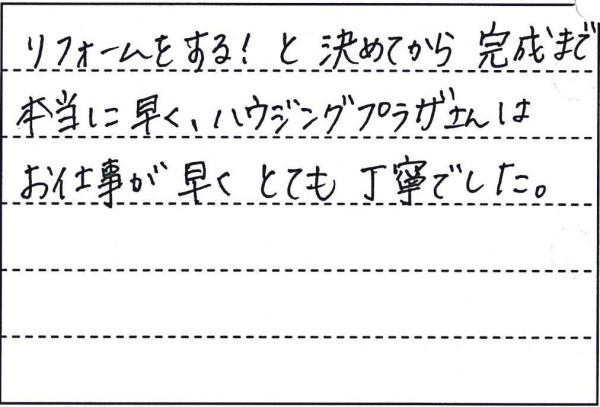 リフォームをする！と 決めてから 完成まで
本当に早く、ハウジングプラザさんは
お仕事が 早く とても 丁寧でした。